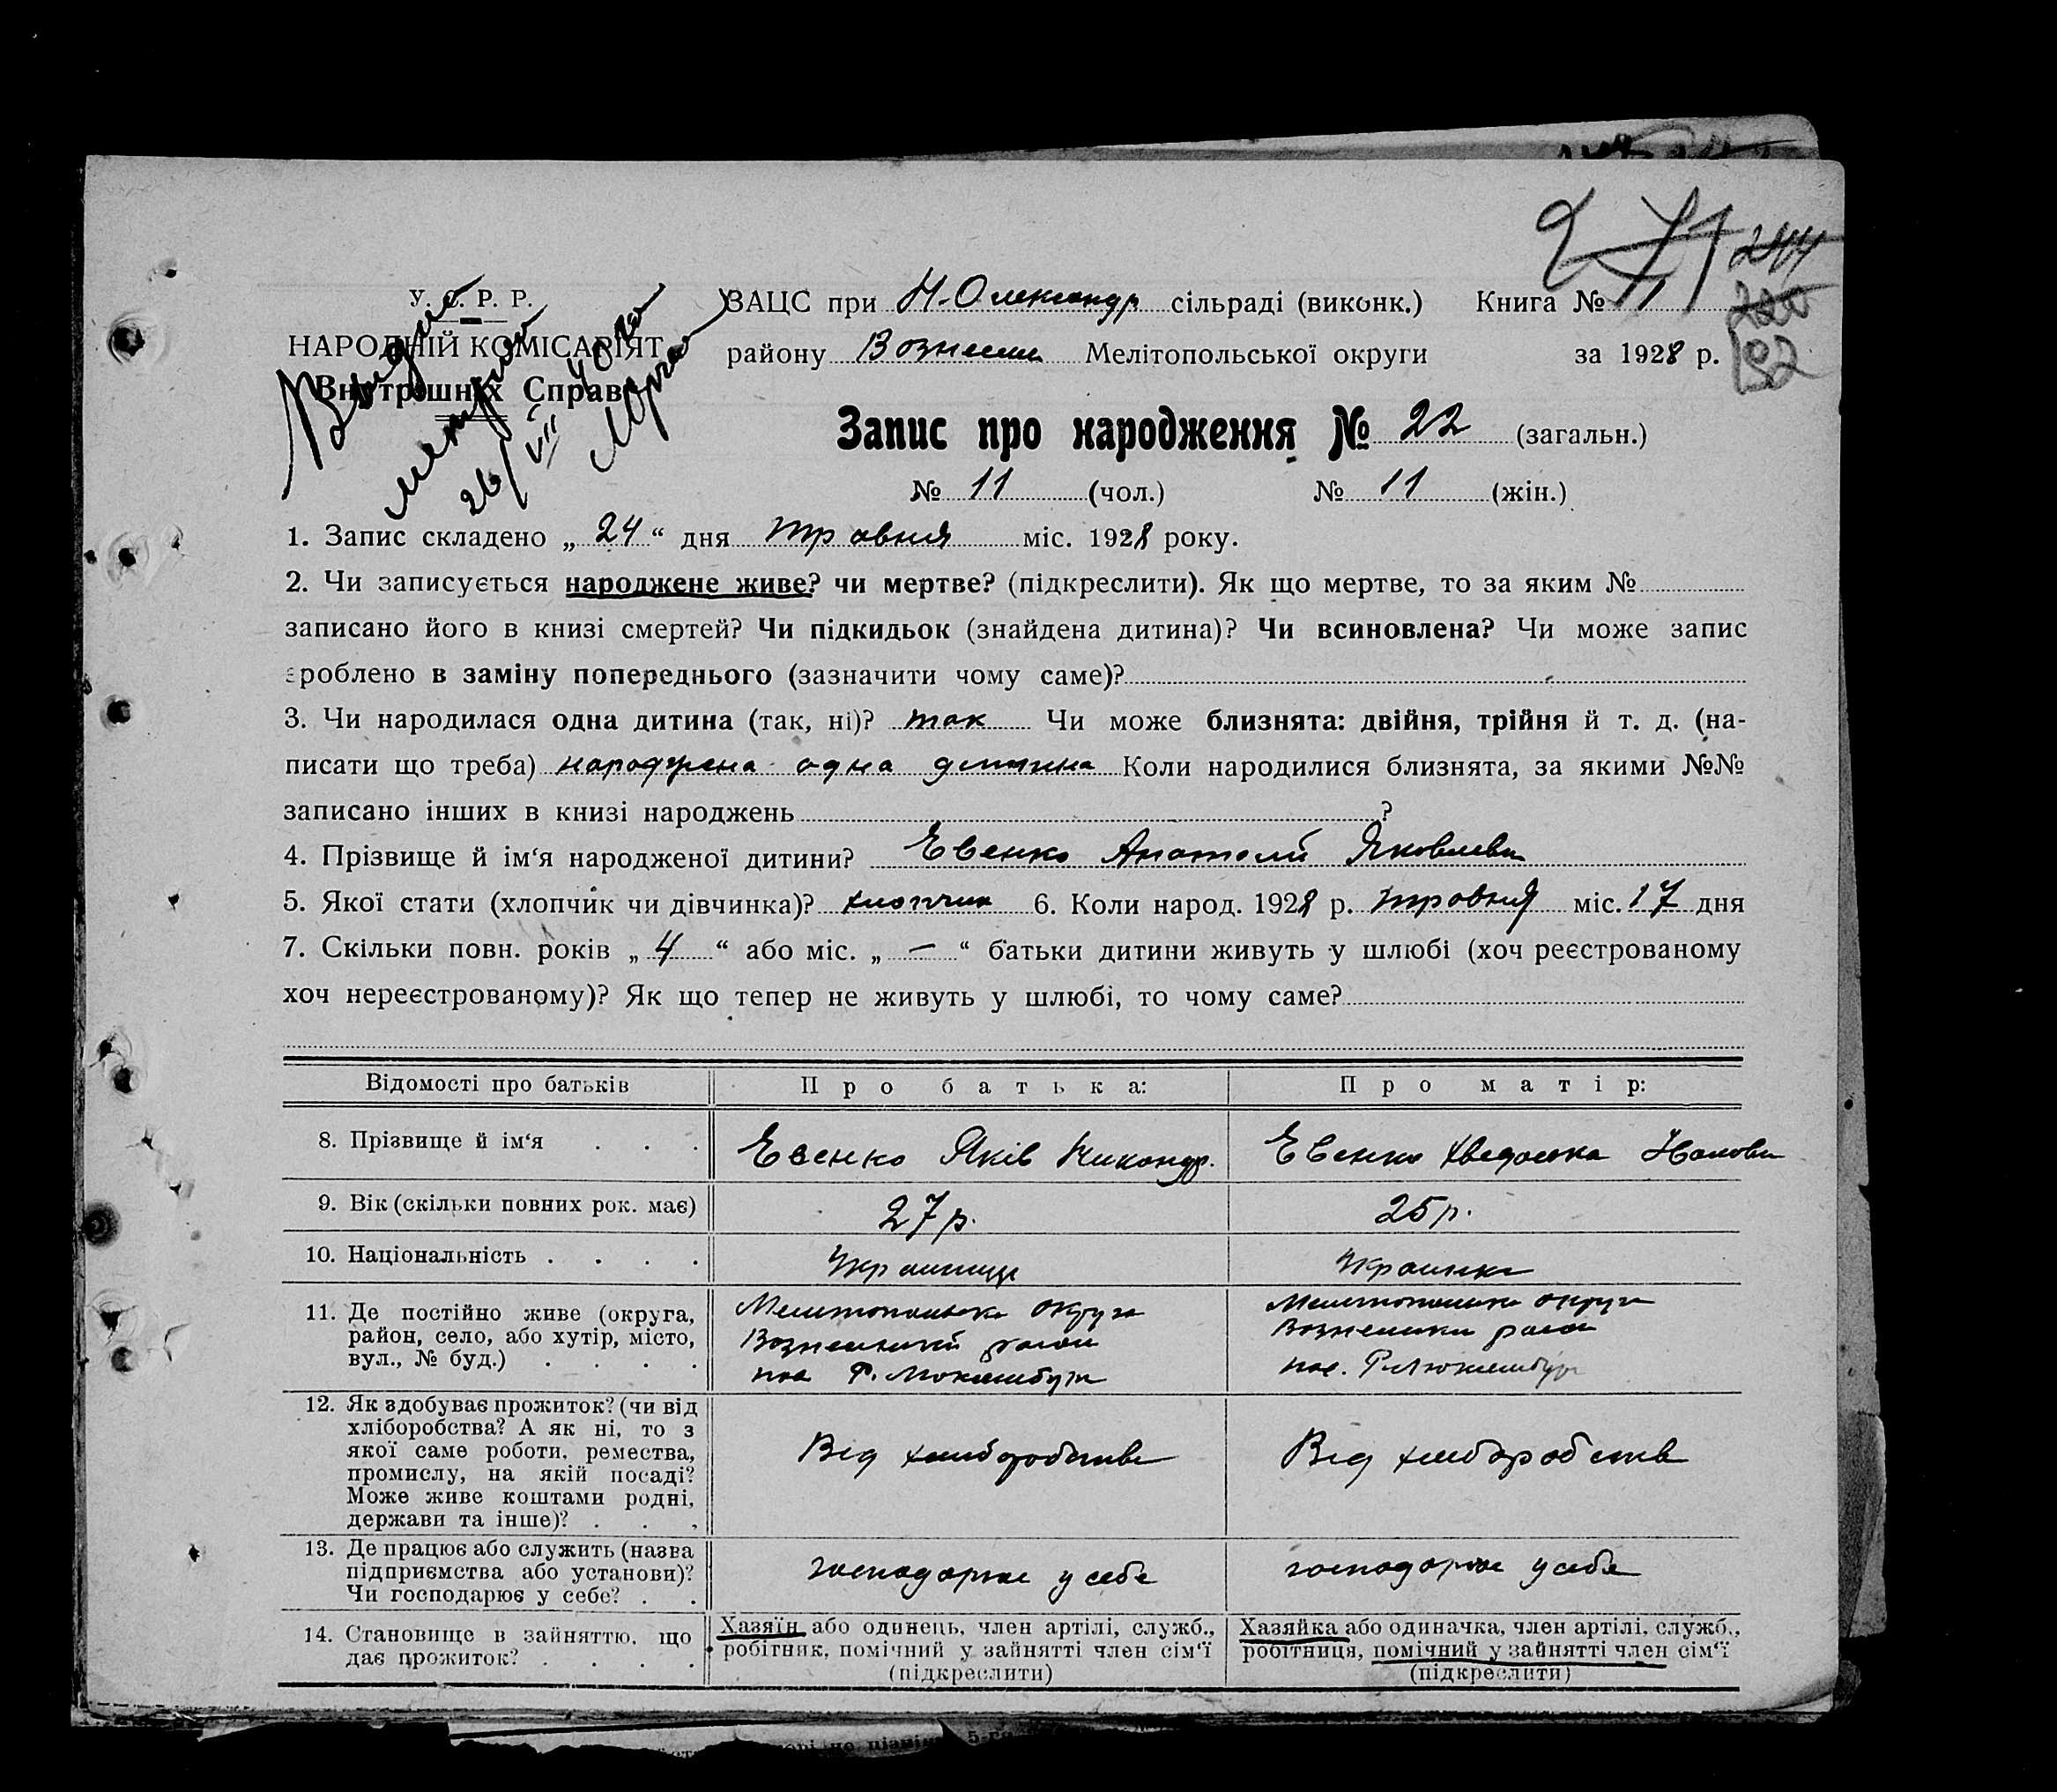 244
У. С. Р. Р.
НАРОДНІЙ КОМІСАРІЯТ
Внутрошніх Справ
26/VII 40 го
ЗАЦС при Н-Олександр сільраді (виконк.) Книга № 11
району Вознесен Мелітопольської округи за 1928 р.
Запис про народження № 22 (загальн.)
№ 11 (чол.) № 11 (жін.)
1. Запис складено „ 24 “ дня травня міс. 1928 року.
2. Чи записується народжене живе? чи мертве? (підкреслити). Як що мертве, то за яким №
записано його в книзі смертей? Чи підкидьок (знайдена дитина)? Чи всиновлена? Чи може запис
зроблено в заміну попереднього (зазначити чому саме)?
3. Чи народилася одна дитина (так, ні)? так Чи може близнята: двійня, трійня й т. д. (на-
писати що треба) народжена одна дитина Коли народилися близнята, за якими №№
записано інших в книзі народжень ?
4. Прізвище й ім‘я народженої дитини? Евенко Анатолій Яковлеви
5. Якої стати (хлопчик чи дівчинка)? хлопчик 6. Коли народ. 1928 р. травня міс. 17 дня
7. Скільки повн. років „ 4 “ або міс. „ — “ батьки дитини живуть у шлюбі (хоч реєстрованому
хоч нереєстрованому)? Як що тепер не живуть у шлюбі, то чому саме?
Відомості про батьків Про батька: Про матір:
8. Прізвище й ім‘я . . . Евенко Яків Никандр. Евенко Хведоська
9. Вік (скільки повних рок. має) 27 р. 25 р.
10. Національність . . . . Українец Украинка
11. Де постійно живе (округа,
район, село, або хутір, місто,
вул., № буд.) . . . .
Мелитопольска округа
Вознесенский район
пос Р. Люксембург
Мелитопольска округа
Вознесенски район
пос. Р Люксембург
12. Як здобуває прожиток? (чи від
хліборобства? А як ні, то з
якої саме роботи, ремества,
промислу, на якій посаді?
Може живе коштами родні,
держави та інше)? . . .
Від хліборобства
Від хліборобств
13. Де працює або служить (назва
підприємства або установи)?
Чи господарює у себе? . .
господарює у себе
господарює у себе
14. Становище в зайняттю, що
дає прожиток? . . . .
Хазяїн або одинець, член артілі, служб.,
робітник, помічний у зайнятті член сім‘ї
(підкреслити)
Хазяйка або одиначка, член артілі, служб.,
робітниця, помічний у зайнятті член сім‘ї
(підкреслити)